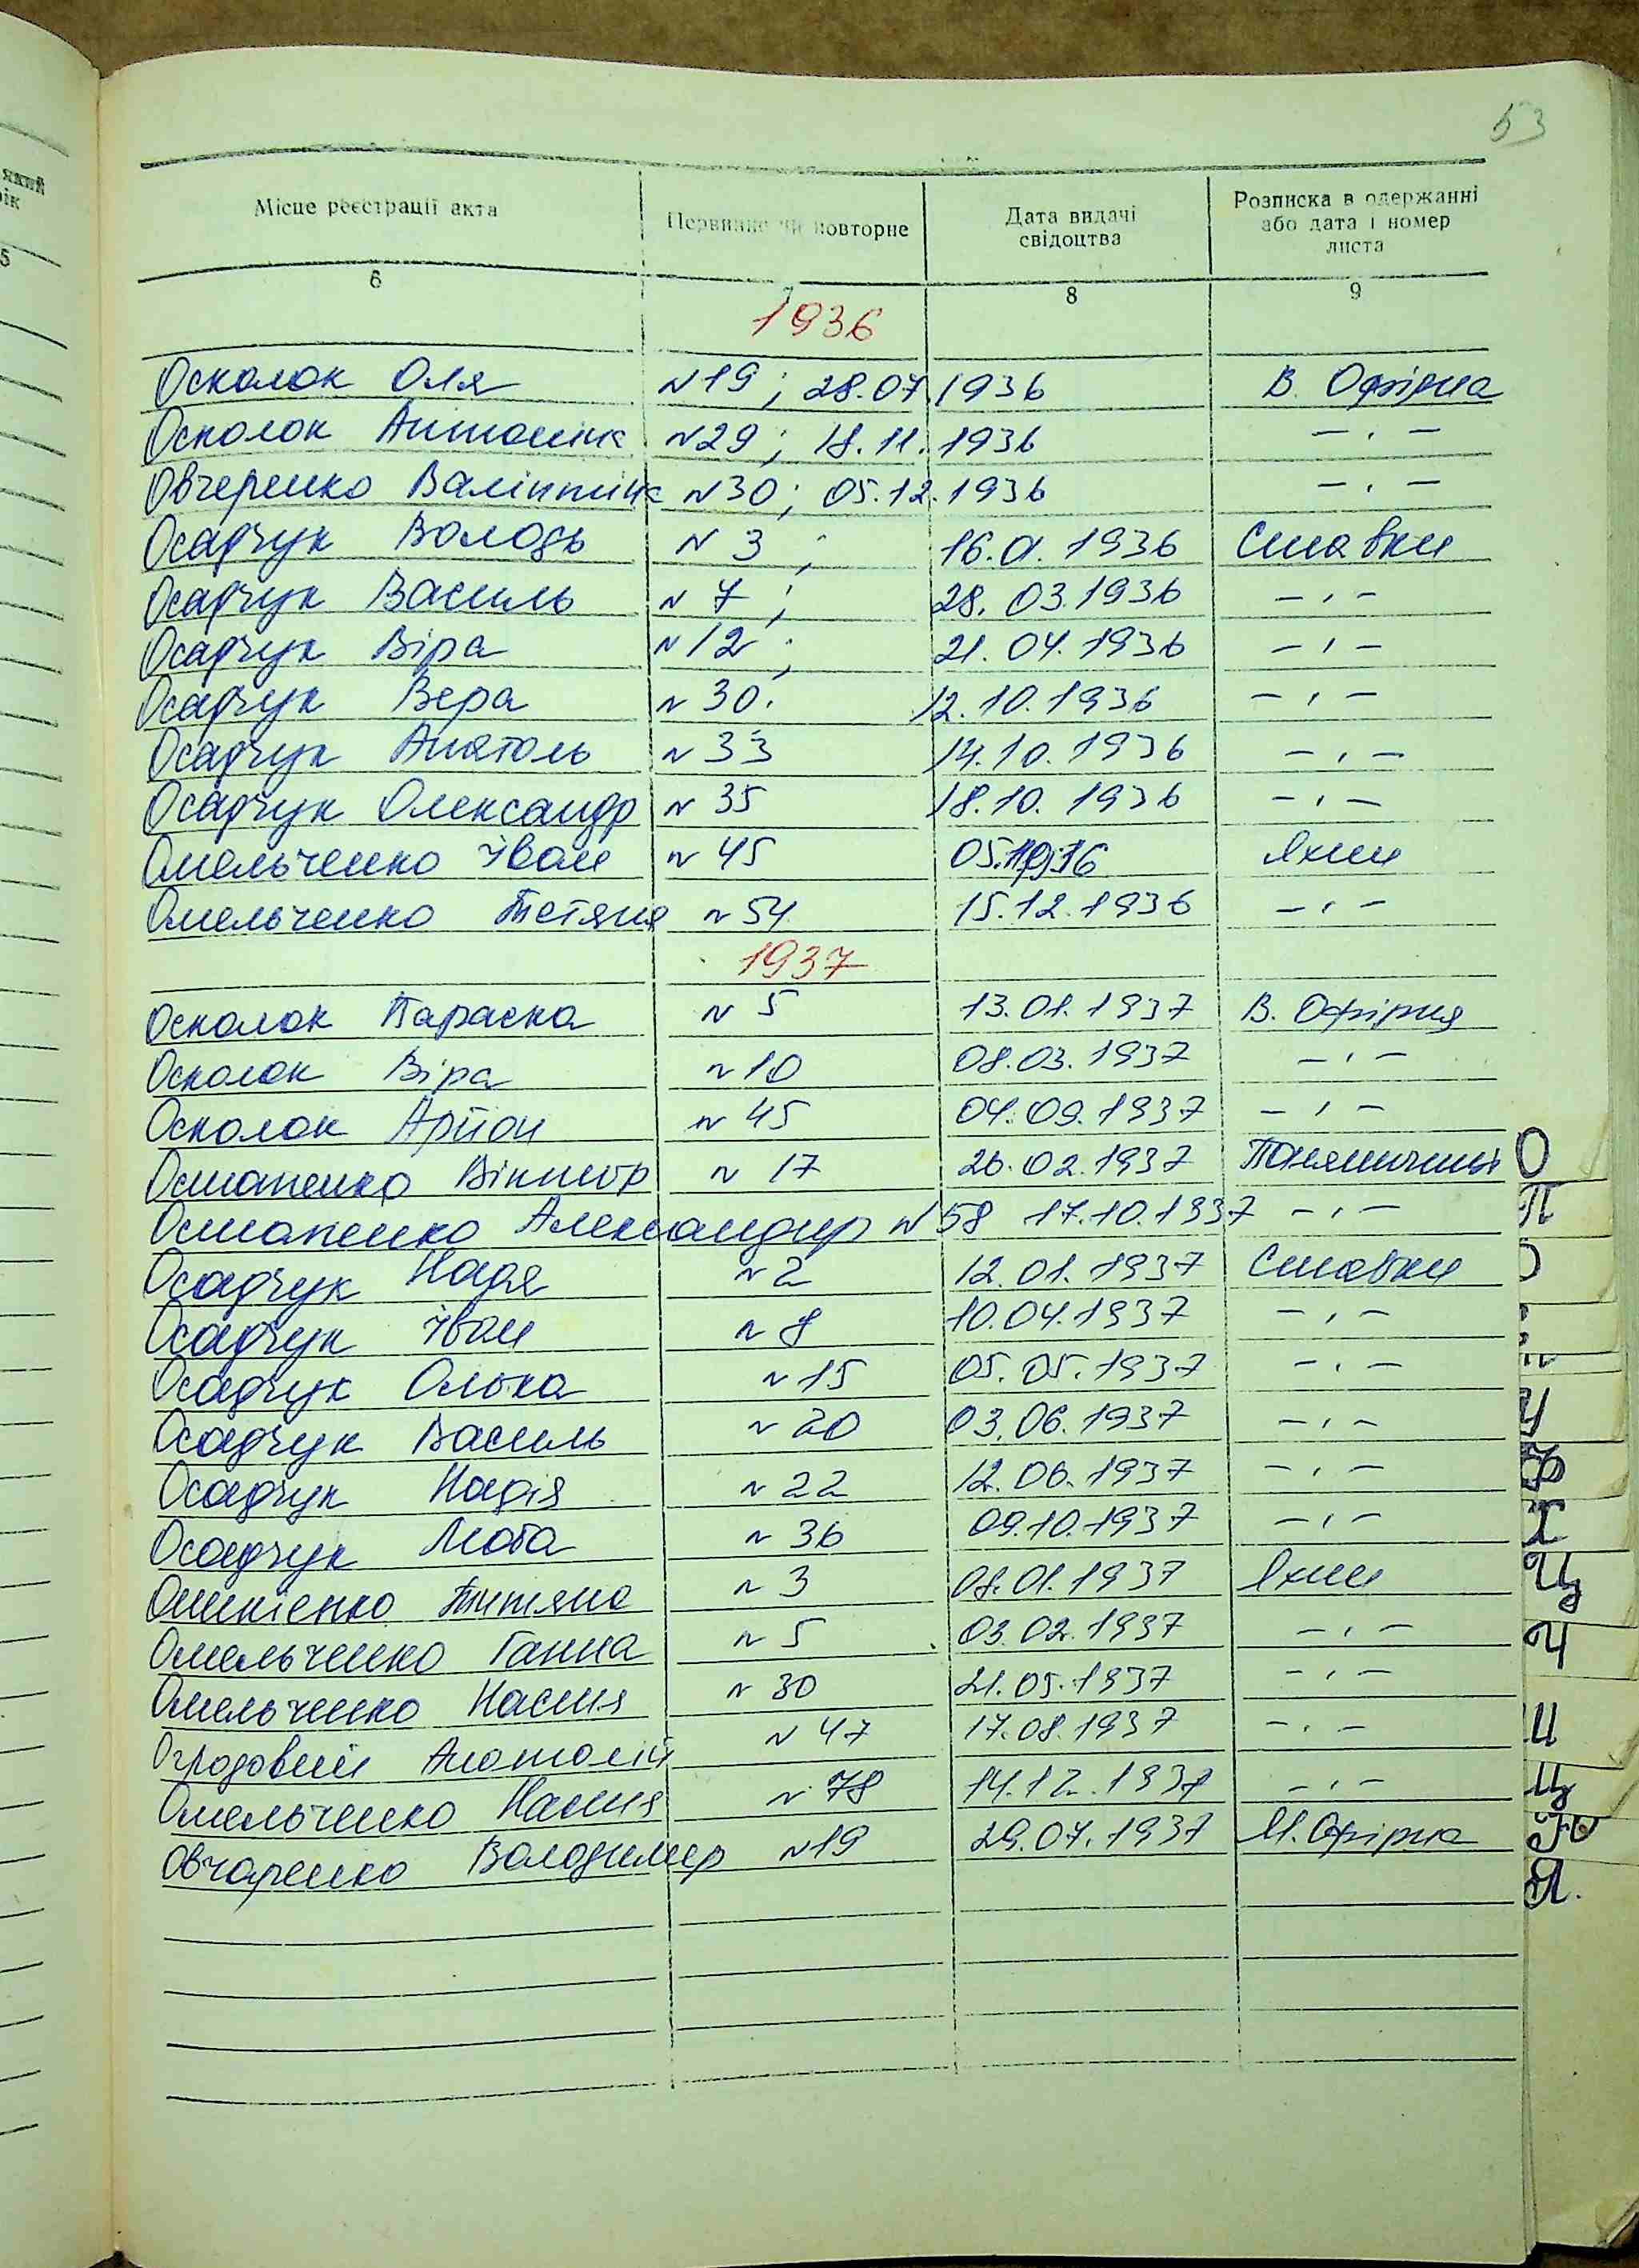 53
який
рік
5
Місце реєстрації акта | Первинне чи повторне | Дата видачі свідоцтва | Розписка в одержанні або дата і номер листа
6 | 7 | 8 | 9
1936
Осколок Оля N19; 28.07.1936 В. Офірна
Осколок Антоніна N29; 18.11.1936 – , –
Овчеренко Валінтіна N30; 05.12.1936 – , –
Осадчук Володь N 3; 16.01.1936 Ставки
Осадчук Василь N 7; 28.03.1936 – , –
Осадчук Віра N12; 21.04.1936 – , –
Осадчук Вера N 30. 12.10.1936 – , –
Осадчук Анатоль N 33 14.10.1936 – , –
Осадчук Олександр N 35 18.10.1936 – , –
Омельченко Іван N 45 Яхни
Омельченко Тетяна N 54 15.12.1936 – , –
1937
Осколок Параска N 5 13.01.1937 В. Офірня
Осколок Віра N10 08.03.1937 – , –
Осколок N 45 04.09.1937 – , –
Остапенко Віктор N 17 26.02.1937 О
Остапенко Александир N58 17.10.1937 – , – П
Осадчук Надя N2 12.01.1937 Ставки
Осадчук Іван N 8 10.04.1937 – , –
Осадчук Олька N15 05.05.1937 – , –
Осадчук Василь N 20 03.06.1937 – , – У
Осадчук Надія N 22 12.06.1937 – , – Ф
Осадчук Люба N 36 09.10.1937 – , – Х
Титяна N 3 08.01.1937 Яхни Ц
Омельченко Ганна N 5 03.02.1937 – , – Ч
Омельченко Настя N 30 21.05.1937 – , –
Огродовий Анатолій N 47 17.08.1937 – , – Ш
Омельченко Настя N 78 14.12.1937 – , – Щ
Овчаренко Володимир N19 29.07.1937 М. Офірна Ю
Я.